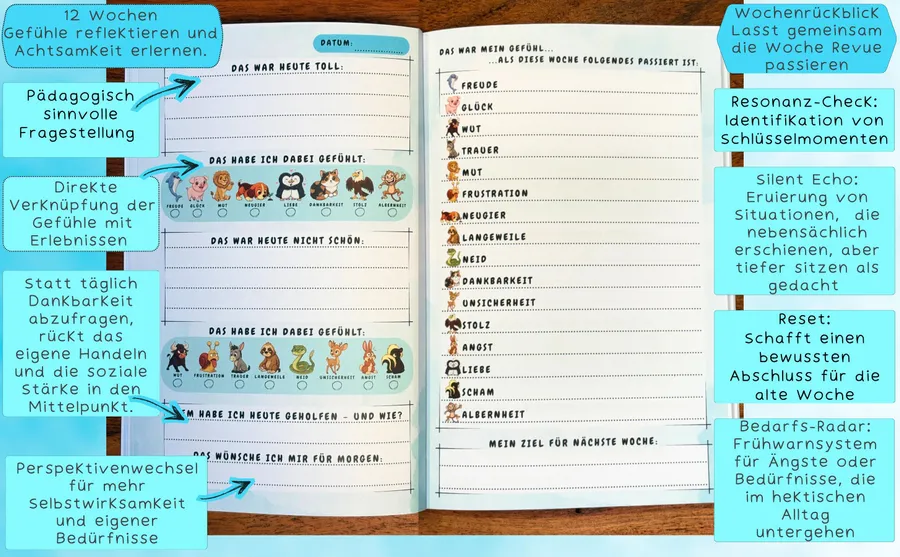 12 Wochen
Gefühle reflektieren und
Achtsamkeit erlernen.
Pädagogisch
sinnvolle
Fragestellung
Direkte
Verknüpfung der
Gefühle mit
Erlebnissen
Statt täglich
Dankbarkeit
abzufragen,
rückt das
eigene Handeln
und die soziale
Stärke in den
Mittelpunkt.
Perspektivenwechsel
für mehr
Selbstwirksamkeit
und eigener
Bedürfnisse
DATUM:
DAS WAR HEUTE TOLL:
DAS HABE ICH DABEI GEFÜHLT:
FREUDE GLÜCK MUT NEUGIER LIEBE DANKBARKEIT STOLZ ALBERNHEIT
DAS WAR HEUTE NICHT SCHÖN:
DAS HABE ICH DABEI GEFÜHLT:
WUT FRUSTRATION TRAUER LANGEWEILE NEID UNSICHERHEIT ANGST SCHAM
EM HABE ICH HEUTE GEHOLFEN – UND WIE?
DAS WÜNSCHE ICH MIR FÜR MORGEN:
DAS WAR MEIN GEFÜHL...
...ALS DIESE WOCHE FOLGENDES PASSIERT IST:
FREUDE
GLÜCK
WUT
TRAUER
MUT
FRUSTRATION
NEUGIER
LANGEWEILE
NEID
DANKBARKEIT
UNSICHERHEIT
STOLZ
ANGST
LIEBE
SCHAM
ALBERNHEIT
MEIN ZIEL FÜR NÄCHSTE WOCHE:
Wochenrückblick
Lasst gemeinsam
die Woche Revue
passieren
Resonanz-Check:
Identifikation von
Schlüsselmomenten
Silent Echo:
Eruierung von
Situationen, die
nebensächlich
erschienen, aber
tiefer sitzen als
gedacht
Reset:
Schafft einen
bewussten
Abschluss für die
alte Woche
Bedarfs-Radar:
Frühwarnsystem
für Ängste oder
Bedürfnisse, die
im hektischen
Alltag
untergehen